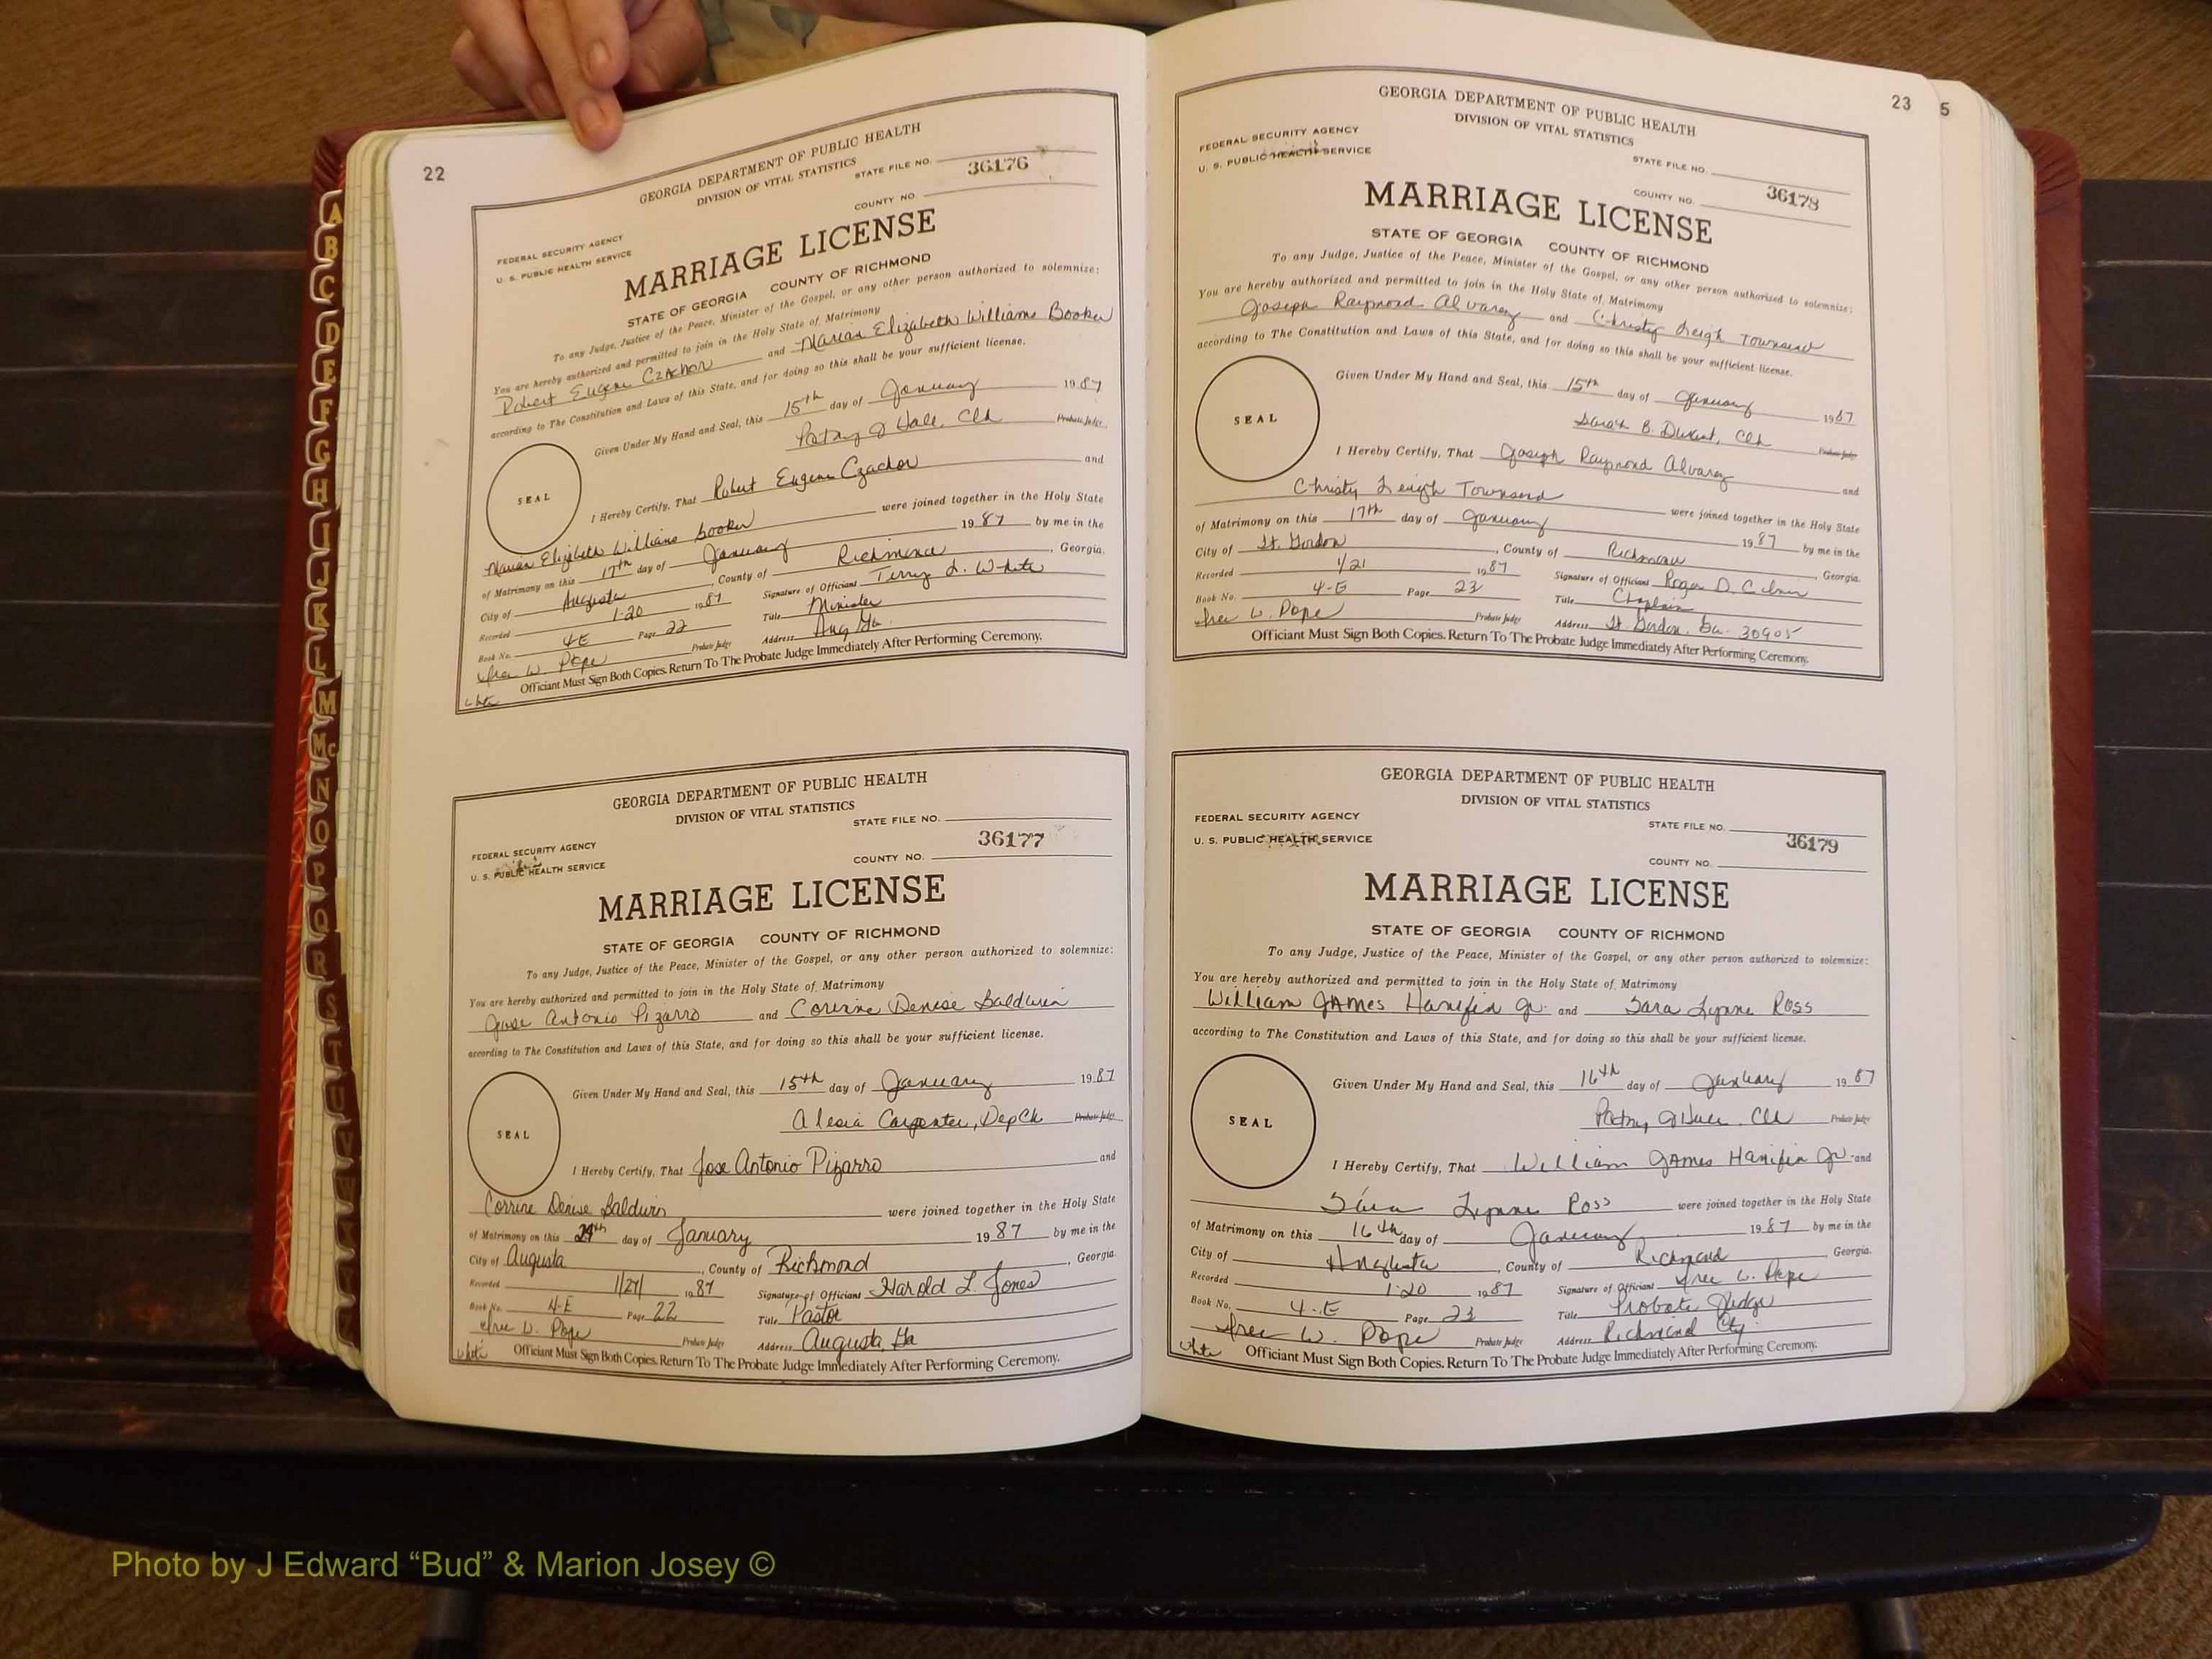 22
GEORGIA DEPARTMENT OF PUBLIC HEALTH
DIVISION OF VITAL STATISTICS
STATE FILE NO.
36176
COUNTY NO.
FEDERAL SECURITY AGENCY
U. S. PUBLIC HEALTH SERVICE
MARRIAGE LICENSE
STATE OF GEORGIA COUNTY OF RICHMOND
To any Judge, Justice of the Peace, Minister of the Gospel, or any other person authorized to solemnize:
You are hereby authorized and permitted to join in the Holy State of Matrimony
Robert Eugene Czachor and Marian Elizabeth Williams Booker
according to The Constitution and Laws of this State, and for doing so this shall be your sufficient license.
Given Under My Hand and Seal, this 15th day of January 1987
Patsy J Hall, Clk Probate Judge
SEAL
I Hereby Certify, That Robert Eugene Czachor and
Marian Elizabeth Williams Booker were joined together in the Holy State
of Matrimony on this 17th day of January 1987 by me in the
City of Augusta, County of Richmond, Georgia.
Recorded 1-20 1987 Signature of Officiant Terry L. White
Book No. 4E Page 22 Title Minister
W. Pope Probate Judge Address Aug Ga.
Officiant Must Sign Both Copies. Return To The Probate Judge Immediately After Performing Ceremony.
White
GEORGIA DEPARTMENT OF PUBLIC HEALTH
DIVISION OF VITAL STATISTICS
STATE FILE NO.
36177
COUNTY NO.
FEDERAL SECURITY AGENCY
U. S. PUBLIC HEALTH SERVICE
MARRIAGE LICENSE
STATE OF GEORGIA COUNTY OF RICHMOND
To any Judge, Justice of the Peace, Minister of the Gospel, or any other person authorized to solemnize:
You are hereby authorized and permitted to join in the Holy State of Matrimony
Jose Antonio Pizarro and Corrine Denise Baldwin
according to The Constitution and Laws of this State, and for doing so this shall be your sufficient license.
Given Under My Hand and Seal, this 15th day of January 1987
Alesia Carpenter, Dep Clk Probate Judge
SEAL
I Hereby Certify, That Jose Antonio Pizarro and
Corrine Denise Baldwin were joined together in the Holy State
of Matrimony on this day of January 1987 by me in the
City of Augusta, County of Richmond, Georgia.
Recorded 1/27/ 1987 Signature of Officiant Harold L. Jones
Book No. 4-E Page 22 Title Pastor
W. Pope Probate Judge Address Augusta, Ga
Officiant Must Sign Both Copies. Return To The Probate Judge Immediately After Performing Ceremony.
White
23
5
GEORGIA DEPARTMENT OF PUBLIC HEALTH
DIVISION OF VITAL STATISTICS
FEDERAL SECURITY AGENCY
U. S. PUBLIC HEALTH SERVICE
STATE FILE NO.
36178
COUNTY NO.
MARRIAGE LICENSE
STATE OF GEORGIA COUNTY OF RICHMOND
To any Judge, Justice of the Peace, Minister of the Gospel, or any other person authorized to solemnize:
You are hereby authorized and permitted to join in the Holy State of Matrimony
Joseph Raymond Alvarez and Christy Leigh Townsend
according to The Constitution and Laws of this State, and for doing so this shall be your sufficient license.
Given Under My Hand and Seal, this 15th day of January 1987
Sarah B. Clk Probate Judge
SEAL
I Hereby Certify, That Joseph Raymond Alvarez and
Christy Leigh Townsend were joined together in the Holy State
of Matrimony on this 17th day of January 1987 by me in the
City of Ft. Gordon, County of Richmond, Georgia.
Recorded 1/21 1987 Signature of Officiant Roger D.
Book No. 4-E Page 23 Title Chaplain
W. Pope Probate Judge Address Ft. Gordon, Ga. 30905
Officiant Must Sign Both Copies. Return To The Probate Judge Immediately After Performing Ceremony.
GEORGIA DEPARTMENT OF PUBLIC HEALTH
DIVISION OF VITAL STATISTICS
FEDERAL SECURITY AGENCY
U. S. PUBLIC HEALTH SERVICE
STATE FILE NO.
36179
COUNTY NO.
MARRIAGE LICENSE
STATE OF GEORGIA COUNTY OF RICHMOND
To any Judge, Justice of the Peace, Minister of the Gospel, or any other person authorized to solemnize:
You are hereby authorized and permitted to join in the Holy State of Matrimony
William James Hanifin Jr. and Sara Lynne Ross
according to The Constitution and Laws of this State, and for doing so this shall be your sufficient license.
Given Under My Hand and Seal, this 16th day of January 1987
Patsy J Hall, Clk Probate Judge
SEAL
I Hereby Certify, That William James Hanifin Jr and
Sara Lynne Ross were joined together in the Holy State
of Matrimony on this 16th day of January 1987 by me in the
City of Augusta, County of Richmond, Georgia.
Recorded 1-20 1987 Signature of Officiant W. Pope
Book No. 4-E Page 23 Title Probate Judge
W. Pope Probate Judge Address Richmond Cty
Officiant Must Sign Both Copies. Return To The Probate Judge Immediately After Performing Ceremony.
White
A
B
C
D
E
F
G
H
I
J
K
L
M
Mc
N
O
P
Q
R
S
T
U
V
Photo by J Edward “Bud” & Marion Josey ©